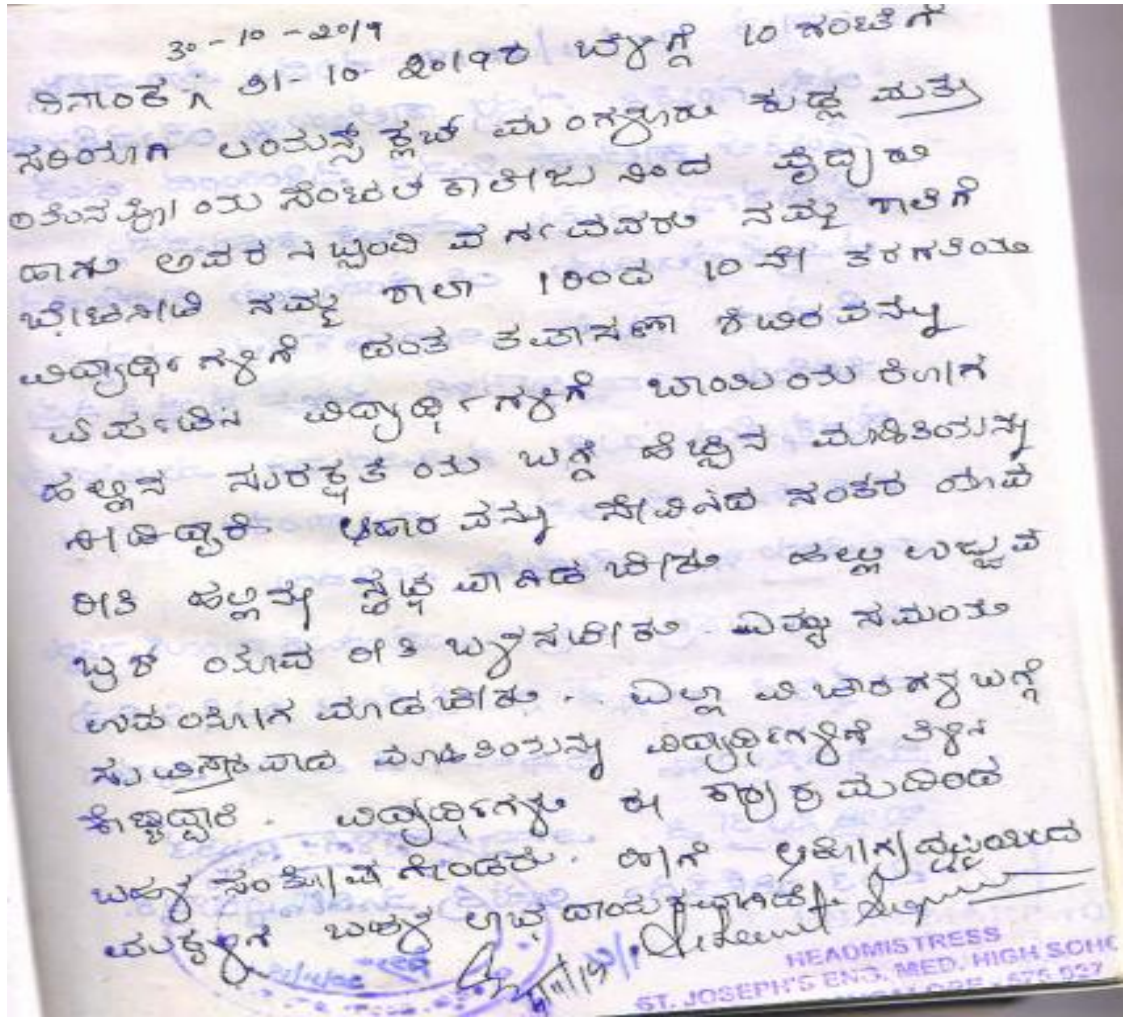 30-10-2019
ದಿನಾಂಕ 31-10-2019ರ ಬೆಳಗ್ಗೆ 10 ಗಂಟೆಗೆ
ಸರಿಯಾಗಿ ಲಯನ್ಸ್ ಕ್ಲಬ್ ಮಂಗಳೂರು ಕುಡ್ಲ ಮತ್ತು
ಡೆಂಟಲ್ ಕಾಲೇಜು ನಿಂದ ವೈದ್ಯರು
ಹಾಗು ಅವರ ಸಿಬ್ಬಂದಿ ವರ್ಗದವರು ನಮ್ಮ ಶಾಲೆಗೆ
ಭೇಟಿನೀಡಿ ನಮ್ಮ ಶಾಲಾ 1ರಿಂದ 10ನೇ ತರಗತಿಯ
ವಿದ್ಯಾರ್ಥಿಗಳಿಗೆ ದಂತ ತಪಾಸಣಾ ಶಿಬಿರವನ್ನು
ಏರ್ಪಡಿಸಿ ವಿದ್ಯಾರ್ಥಿಗಳಿಗೆ ಬಾಯಿಯ ರೋಗ
ಹಲ್ಲಿನ ಸುರಕ್ಷತೆಯ ಬಗ್ಗೆ ಹೆಚ್ಚಿನ ಮಾಹಿತಿಯನ್ನು
ನೀಡಿದ್ದಾರೆ. ಆಹಾರವನ್ನು ಸೇವಿಸಿದ ನಂತರ ಯಾವ
ರೀತಿ ಹಲ್ಲನ್ನು ಸ್ವಚ್ಛವಾಗಿಡಬೇಕು ಹಲ್ಲು ಉಜ್ಜುವ
ಬ್ರಶ್ ಯಾವ ರೀತಿ ಬಳಸಬೇಕು. ಎಷ್ಟು ಸಮಯ
ಉಪಯೋಗ ಮಾಡಬೇಕು.. ಎಲ್ಲಾ ವಿಚಾರಗಳ ಬಗ್ಗೆ
ಸುವಿಸ್ತಾರವಾದ ಮಾಹಿತಿಯನ್ನು ವಿದ್ಯಾರ್ಥಿಗಳಿಗೆ ತಿಳಿಸಿ
ಕೊಟ್ಟಿದ್ದಾರೆ. ವಿದ್ಯಾರ್ಥಿಗಳು ಈ ಕಾರ್ಯಕ್ರಮದಿಂದ
ಬಹಳ ಸಂತೋಷಗೊಂಡರು. ಹಾಗೆ ಆರೋಗ್ಯದೃಷ್ಟಿಯಿಂದ
ಮಕ್ಕಳಿಗೆ ಬಹಳ ಲಾಭದಾಯಕವಾಗಿದೆ.
HEADMISTRESS
ST. JOSEPH'S ENG. MED. HIGH SCHO